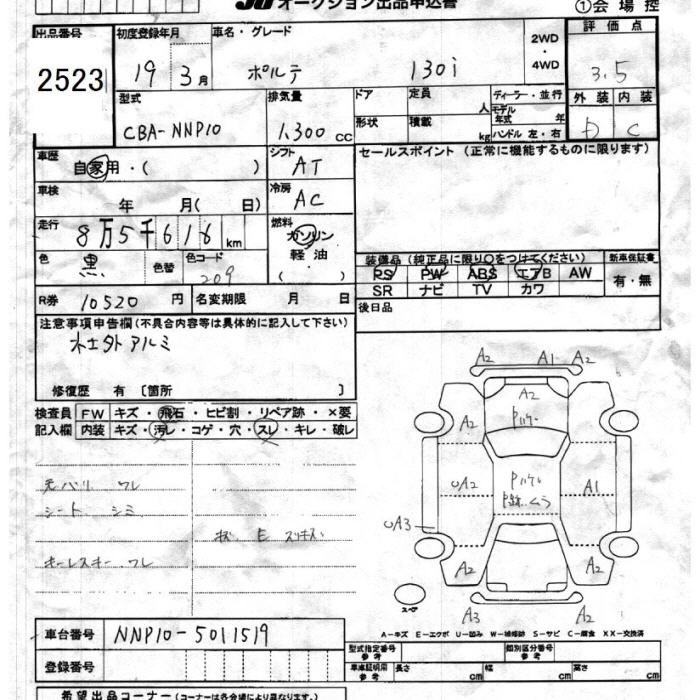 JU オークション出品申込書
①会場控
出品番号
2523
初度登録年月
19 3月
車名・グレード
ポルテ 130i
2WD
・
4WD
評価点
3.5
型式
CBA-NNP10
排気量
1,300cc
ドア
定員
人
形状
積載
kg
ディーラー・並行
モデル年式 年
ハンドル 左・右
外装 内装
D C
車歴
自家用・( )
シフト
AT
車検
年 月( 日)
冷房
AC
走行
8万5千616km
燃料
ガソリン
軽油
( )
色
黒
色替
色コード
209
セールスポイント (正常に機能するものに限ります)
装備品 (純正品に限り○をつけてください)
PS PW ABS エアB AW
SR ナビ TV カワ
新車保証書
有・無
R券 10520円
名変期限 月 日
後日品
注意事項申告欄(不具合内容等は具体的に記入して下さい)
社外アルミ
修復歴 有 〔箇所 〕
検査員 FW キズ・飛石・ヒビ割・リペア跡・×要
記入欄 内装 キズ・汚レ・コゲ・穴・スレ・キレ・破レ
ワレ
シート シミ
キーレスキー ワレ
A2 A1 A2
A2
A2 A2
UA2 A1
UA3
A2 A2
A3 A2
スペア
A-キズ E-エクボ U-凹み W-補修跡 S-サビ C-腐食 XX-交換済
車台番号 NNP10-5011519
登録番号
型式指定番号 参考
類別区分番号 参考
車庫証明用 参考 長さ cm 幅 cm 高さ cm
希望出品コーナー(コーナーは各会場により異なります。)